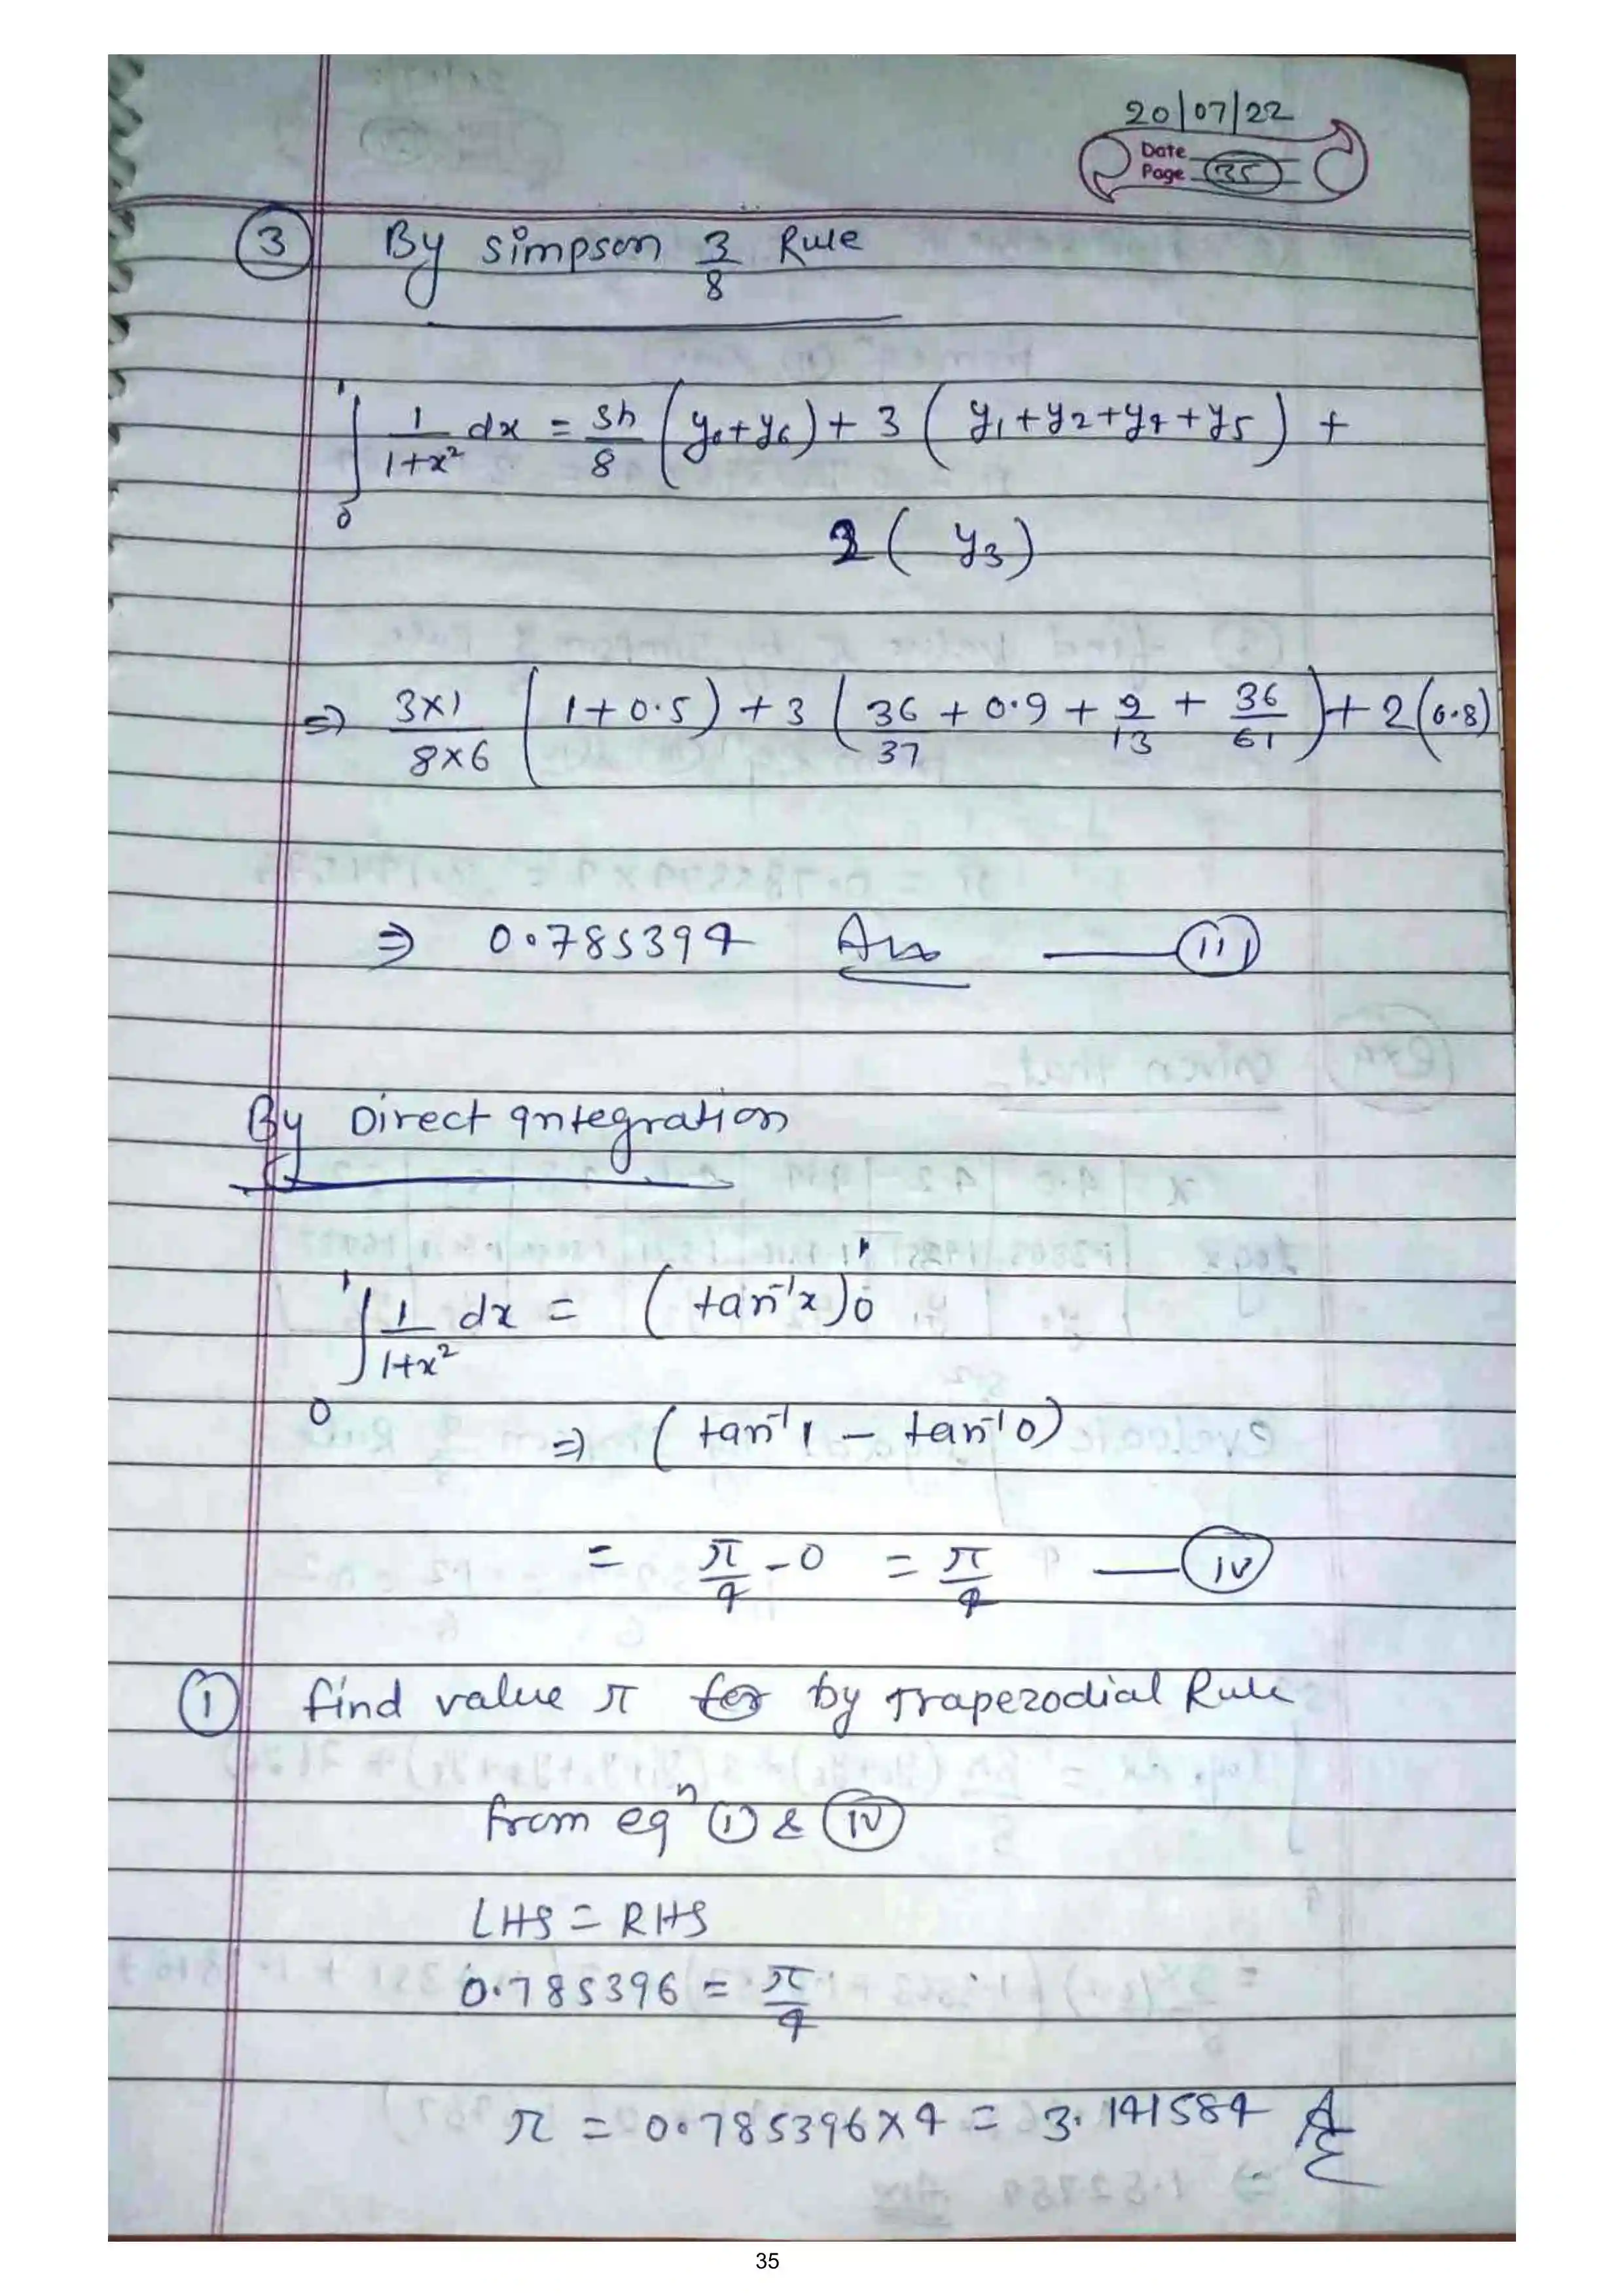 20/07/22
Date
Page 35
③ By Simpson 3/8 Rule
∫₀¹ 1/(1+x²) dx = 3h/8 (y₀+y₆) + 3 (y₁+y₂+y₄+y₅) +
2 ( y₃)
⇒ 3×1/8×6 (1+0.5) + 3 (36/37 + 0.9 + 9/13 + 36/61) + 2(0.8)
⇒ 0.785394 Ans —— (iii)
By Direct Integration
∫₀¹ 1/(1+x²) dx = (tan⁻¹x)₀¹
⇒ (tan⁻¹1 − tan⁻¹0)
= π/4 - 0 = π/4 —— (iv)
① find value π for by Trapezodial Rule
from eqⁿ (i) & (iv)
LHS = RHS
0.785396 = π/4
π = 0.785396×4 = 3.141584 A
35